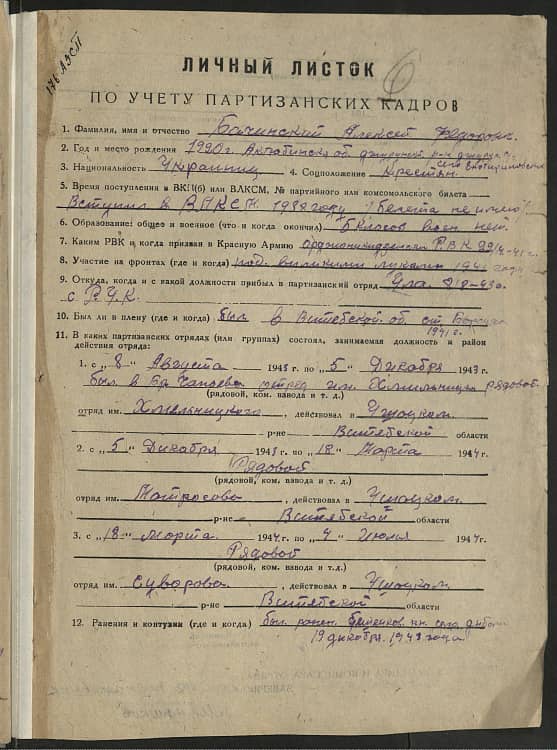 176 АЭСП
6
ЛИЧНЫЙ ЛИСТОК
ПО УЧЕТУ ПАРТИЗАНСКИХ КАДРОВ
1. Фамилия, имя и отчество Бачинский Алексей Федорович
2. Год и место рождения 1920г. Актюбинск об.
3. Национальность Украинец 4. Соцположение крестян.
5. Время поступления в ВКП(б) или ВЛКСМ, № партийного или комсомольского билета
Вступил в ВЛКСМ 1939 году, билета не имею
6. Образование: общее и военное (что и когда окончил) 5 класов воен нет.
7. Каким РВК и когда призван в Красную Армию РВК
8. Участие на фронтах (где и когда) под великими луками 1941 года
9. Откуда, когда и с какой должности прибыл в партизанский отряд
с
10. Был ли в плену (где и когда) был в Витебской об. ст.
1941 г.
11. В каких партизанских отрядах (или группах) состоял, занимаемая должность и район
действия отряда:
1. с „8“ Августа 1943 г. по „5“ Декабря 1943 г.
был в Бр. Чапаева отряд им. Хмельницк рядовой
(рядовой, ком. взвода и т. д.)
отряд им. Хмельницкого, действовал в Ушацком
р-не Витебской области
2. с „5“ Декабря 1943 г. по „18“ Марта 1944 г.
Рядовой
(рядовой, ком. взвода и т. д.)
отряд им. Матросова, действовал в Ушацком
р-не Витебской области
3. с „18“ марта 1944 г. по „4“ Июля 1944 г.
Рядовой
(рядовой, ком. взвода и т. д.)
отряд им. Суворова, действовал в Ушацком
р-не Витебской области
12. Ранения и контузии (где и когда) был ранен
19 декабря 1943 года